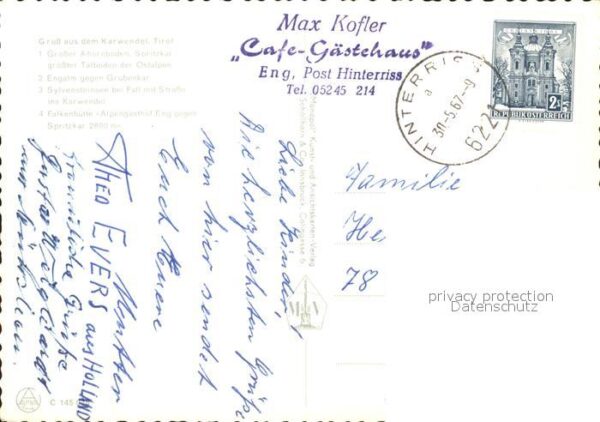 Gruß aus dem Karwendel, Tirol
1 Großer Ahornboden, Spritzkar
größter Talboden der Ostalpen
2 Engalm gegen Grubenkar
3 Sylvensteinsee bei Fall mit Straße
ins Karwendel
4 Falkenhütte - Alpengasthof Eng gegen
Spritzkar 2609 m
Max Kofler
„Cafe-Gästehaus"
Eng, Post Hinterriss
Tel. 05245 214
REPUBLIK ÖSTERREICH
HINTERRISS
30.-5.67.-9
a
6221
Liebe Kinder,
die herzlichsten Grüße
von hier sendet
Euch Eure
Mutter
THEO EVERS aus HOLLAND
freundliche Grüße
aus
Familie
He
78
privacy protection
Datenschutz
C 145